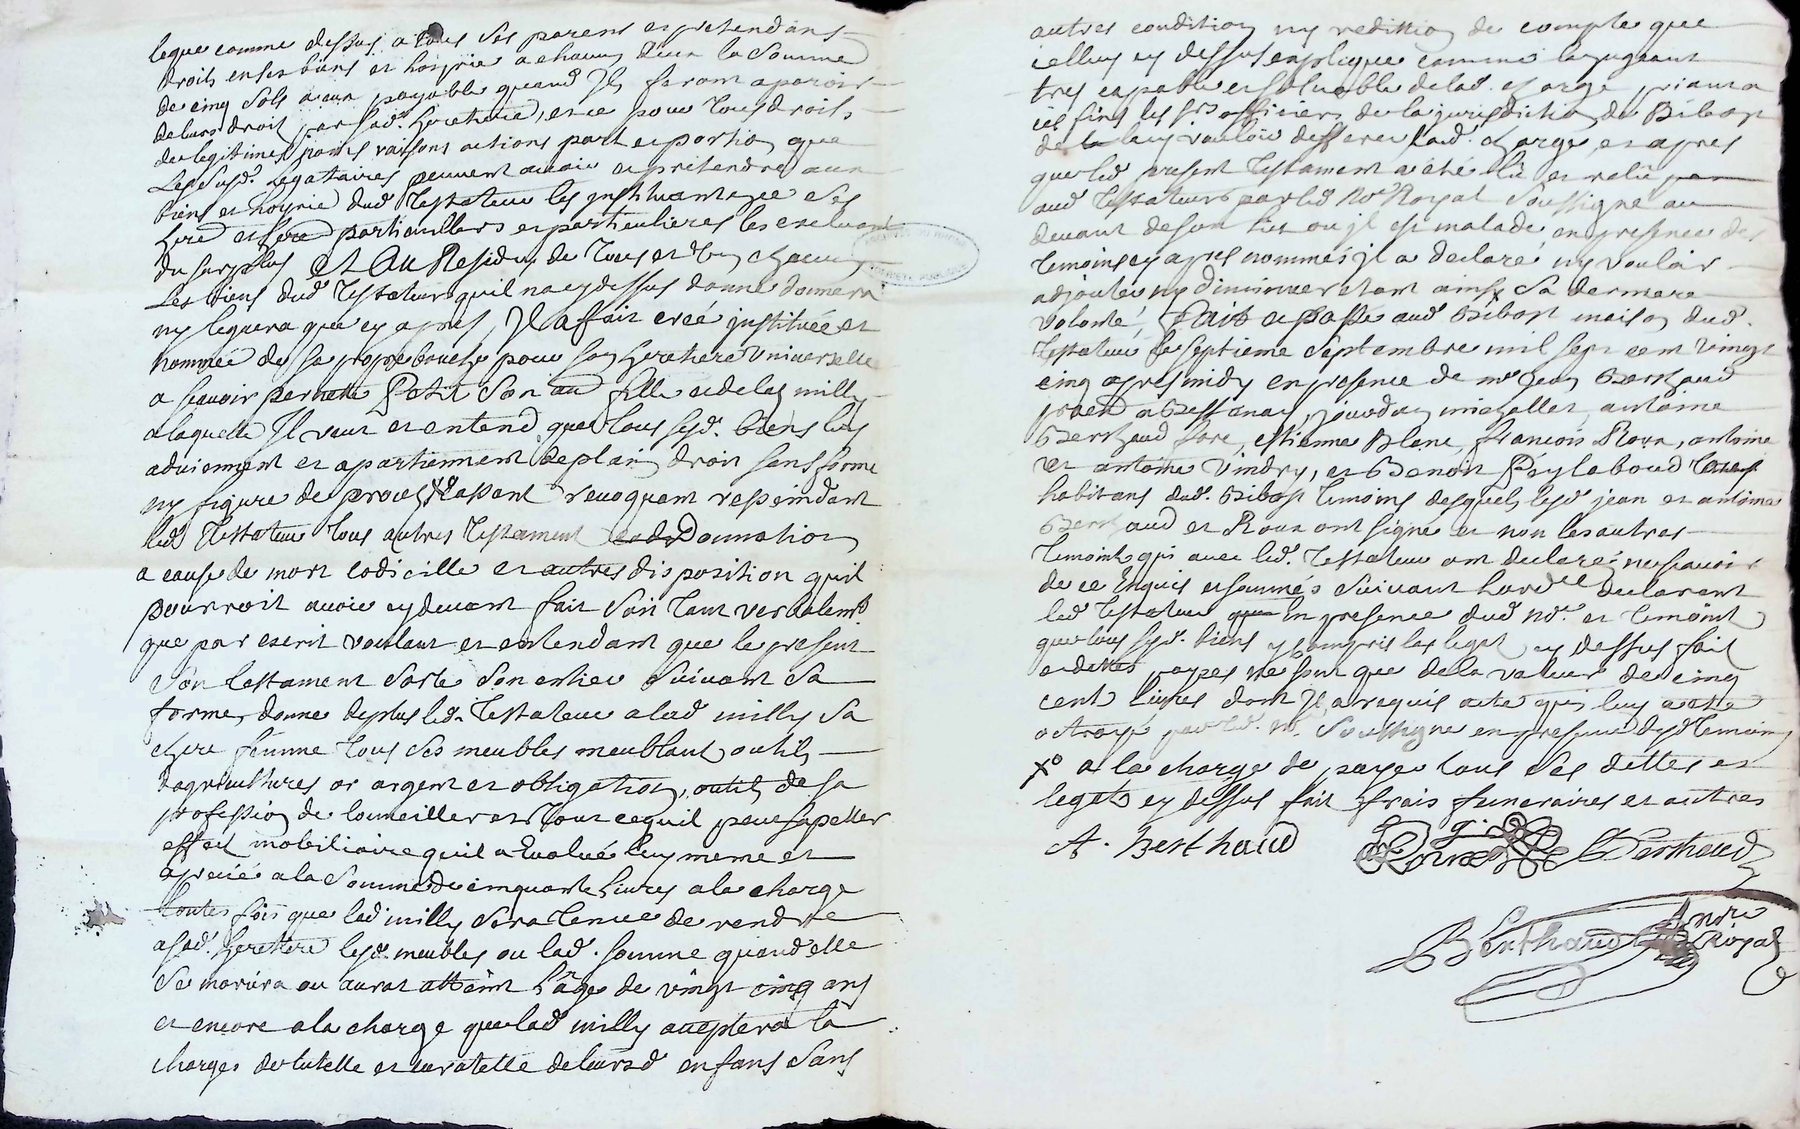 legue comme dessus a tous ses parens et pretendans
droits en ses biens et hoyrie a chacun deux la Somme
de cinq Sols a eux payable quand Ils feront aparoir
de leurs droit par sad. heretiere, et ce pour tous droits
de legitimes noms raisons actions part et portion que
Lesdsusd. legataires peuvent avoir et pretendre aux
biens et hoyrie dud Testateur les instituant ses
here et here particulliers et particulieres les excluant
du surplus et Au Residu de tous et un chacun
Les biens dud Testateur quil na cy dessus donné donnera
ny leguera que cy apres, Il a fait creé instituée et
nommée de sa propre bouche pour son heretiere Universelle
a scavoir pernette Petit Son fille et de lad milly
a laquelle Il veut et entend que tous sesd. biens luy
adviennent et apartiennent de plain droit sans forme
ny figure de proces xo Cassant revoquant
led Testateur tous autres testament Donnation
a cause de mort codicille et autres disposition quil
pourroit avoir cy devant fait Soit tant verbalemt
que par escrit voulant et entendant que le present
Son testament Sorte Son entier Suivant Sa
forme, donne de plus led. Testateur a lad milly Sa
chere femme tous Ses meubles meublant outils
dagricultures or argent et obligation, outils de sa
profession de et tout ce quil peut sapeller
effait mobiliaire quil a Evalué luy meme et
aprecié a la Somme de cinquante Livres a la charge
toutes fois que lad milly Sera tenue de rendre
a sad. heretiere lesd. meubles ou lad. somme quand elle
Se marira ou aurat atteint L'age de vingt cinq ans
et encore a la charge que lad milly acceptera la
charges de tutelle et curatelle de leursd enfans Sans
autres condition ny reddition de compte que
celluy cy dessus expliqué comme la jugeant
tres capable et solvable de lad. charge, priant a
ces fins les srs officiers de la jurisdiction de Bibost
de la luy vouloir defferer lad. charge, et apres
que led present Testament a été lû et relû
aud Testateur par led Nre Royal Soussigné au
devant de son lict ou il est malade, en presence des
temoins cy apres nommés il a declaré ny vouloir
adjouter ny diminuer etant ainsy Sa derniere
volonté, Fait et passé aud Bibost maison dud.
Testateur le septieme Septembre mil sept cent vingt
cinq apres midy en presence de mr Jean Berthaud
a Bessenay, antoine
Berthaud, estienne Blanc, françois Roux, antoine
et antoine Vindry, et Benoit tous
habitans dud. Bibost temoins desquels lesd jean et antoine
Berthaud et Roux ont signé et non les autres
temoints qui avec led. Testateur ont declaré ne scavoir
de ce Enquis et sommés Suivant lord.ce declarant
led Testateur En presence dud Nre. et temoint
que tous sesd. biens y compris les legats cy dessus fait
et dettes payées ne sont que de la valeur de cinq
cent Livres dont Il a requis acte qui luy a eté
octroyé par led. Nre Soussigné en presence desd temoins
xo a la charge de payer tous Ses dettes et
legats cy dessus fait frais funeraires et autres
A. Berthaud
Berthaud
Berthaud
Nore
Royal